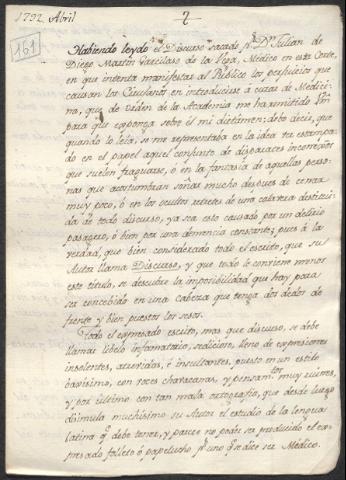 1792 Abril
2
161
Habiendo leydo el Discurso sacado pr. Dn. Julian de
Diego Martin Garcilaso de la Vega, Medico en esta Corte,
en que intenta manifestar al Público los perjuicios que
causan los Cirujanos en introducirse á curas de Medici-
na, que de órden de la Academia me ha remitido Vm
para que exponga sobre él mi dictamen; debo decir, que
quando lo leía, se me representaba en la idea ver estampa-
do en el papel aquel conjunto de disparates incorregibles
que suelen fraguarse, ó en la fantasía de aquellas perso-
nas que acostumbran soñar mucho despues de cenar
muy poco, ó en los ocultos retretes de una cabeza destitui-
da de todo discurso, ya sea esto causado por un delirio
pasagero, ó bien por una demencia constante; pues á la
verdad, que bien considerado todo el escrito, que su
Autor llama Discurso, y que todo le conviene menos
este titulo, se descubre la imposibilidad que hay para
ser concebido en una cabeza que tenga dos dedos de
frente y bien puestos los sesos.
Todo el expresado escrito, mas que discurso, se debe
llamar libelo infamatorio, sedicioso, lleno de expresiones
insolentes, atrevidas, é insultantes, puesto en un estilo
baxisimo, con voces chavacanas, y pensamtos. muy ruines,
y por ultimo con tan mala ortografia, que desde luego
disimula muchisimo su Autor el estudio de la lengua
latina q. debe tener, y parece no poder ser producido el ex-
presado folleto ó papelucho pr. uno q. se dice ser Médico.